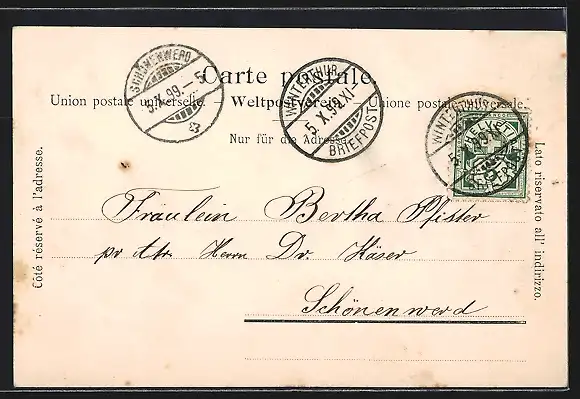 SCHÖNENWERD
5.X.99. - 5
WINTERTHUR
5.X.99.XI-
BRIEFPOST
WINTERTHUR
HELVETIA
Carte postale.
Union postale universelle. - Weltpostverein. - Unione postale universale.
Nur für die Adresse.
Côté réservé à l'adresse.
Lato riservato all' indirizzo.
Fräulein Bertha Pfister
pr Adr. Herrn Dr. Käser
Schönenwerd